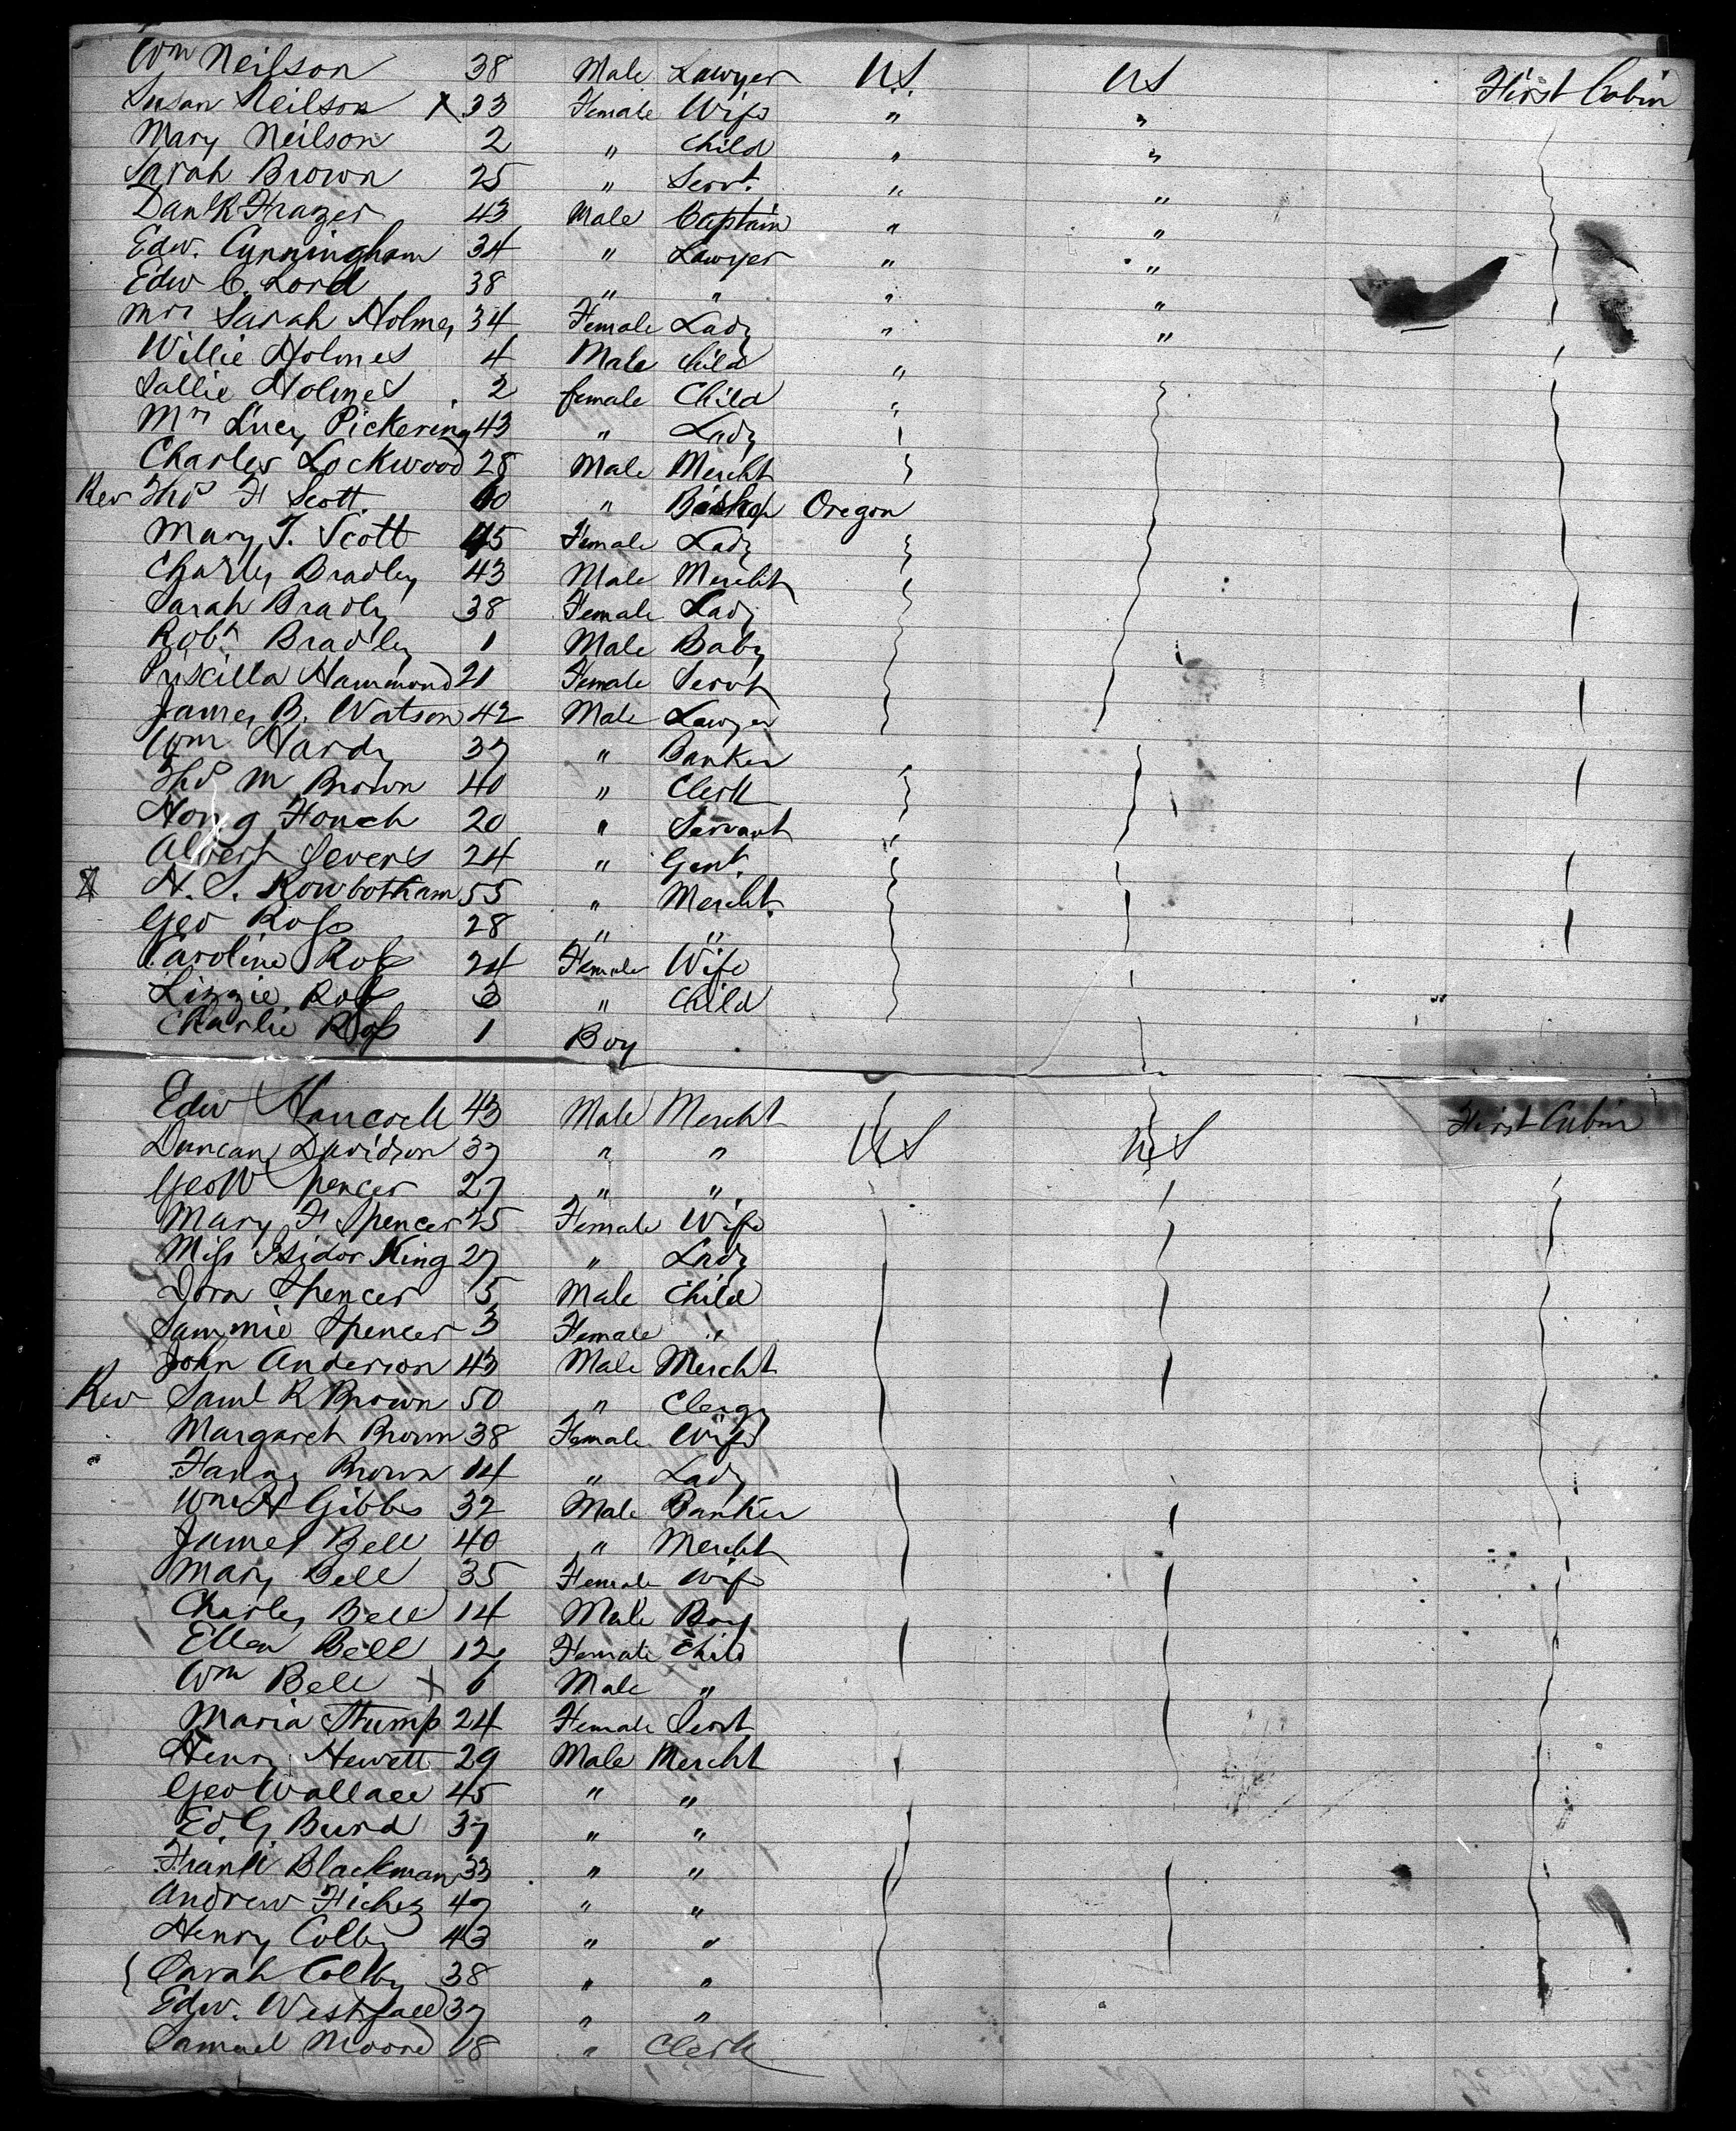 Wm Neilson 38 Male Lawyer U.S. US First Cabin
Susan Neilson X 33 Female Wife " "
Mary Neilson 2 " Child " "
Sarah Brown 25 " Servt. " "
Danl K Frazer 43 Male Captain " "
Edw. Cunningham 34 " Lawyer " "
Edw C. Lord 38 " " " "
Mrs Sarah Holmes 34 Female Lady " "
Willie Holmes 4 Male Child "
Sallie Holmes 2 female Child "
Mrs Lucy Pickering 43 " Lady
Charles Lockwood 28 Male Mercht
Rev Thos F Scott 60 " Bishop Oregon
Mary T. Scott 45 Female Lady
Charles Bradley 43 Male Mercht
Sarah Bradly 38 Female Lady
Robt Bradley 1 Male Baby
Priscilla Hammond 21 Female Servt
James B. Watson 42 Male Lawyer
Wm Hardy 37 " Banker
Thos M Brown 40 " Clerk
Hong Fouch 20 " Servant "
Albert Severs 24 " Gent.
H. S. Rowbotham 55 " Mercht.
Geo Ross 28 " "
Caroline Ross 24 Female Wife
Lizzie Ross 3 " Child
Charlie Ross 1 Boy
Edw Hancock 43 Male Mercht First Cabin
Duncan Davidson 37 " " US US
Geo W Spencer 27 " "
Mary F Spencer 25 Female Wife
Miss Isidor King 27 " Lady
Dora Spencer 5 Male Child
Sammie Spencer 3 Female "
John Anderson 43 Male Mercht
Rev Saml R Brown 50 " Clergy
Margaret Brown 38 Female Wife
Fanny Brown 14 " Lady
Wm H Gibbs 32 Male Banker
James Bell 40 " Mercht
Mary Bell 35 Female Wife
Charley Bell 14 Male Boy
Ellen Bell 12 Female Child
Wm Bell X 6 Male "
Maria Stump 24 Female Servt
Henry Hewett 29 Male Mercht
Geo Wallace 45 " "
Ed G Burd 37 " "
Frank Blackman 33 " "
Andrew 47 " "
Henry Colby 43 " "
Sarah Colby 38 " "
Edw. Westfall 37 " "
Samuel Moore 18 " Clerk